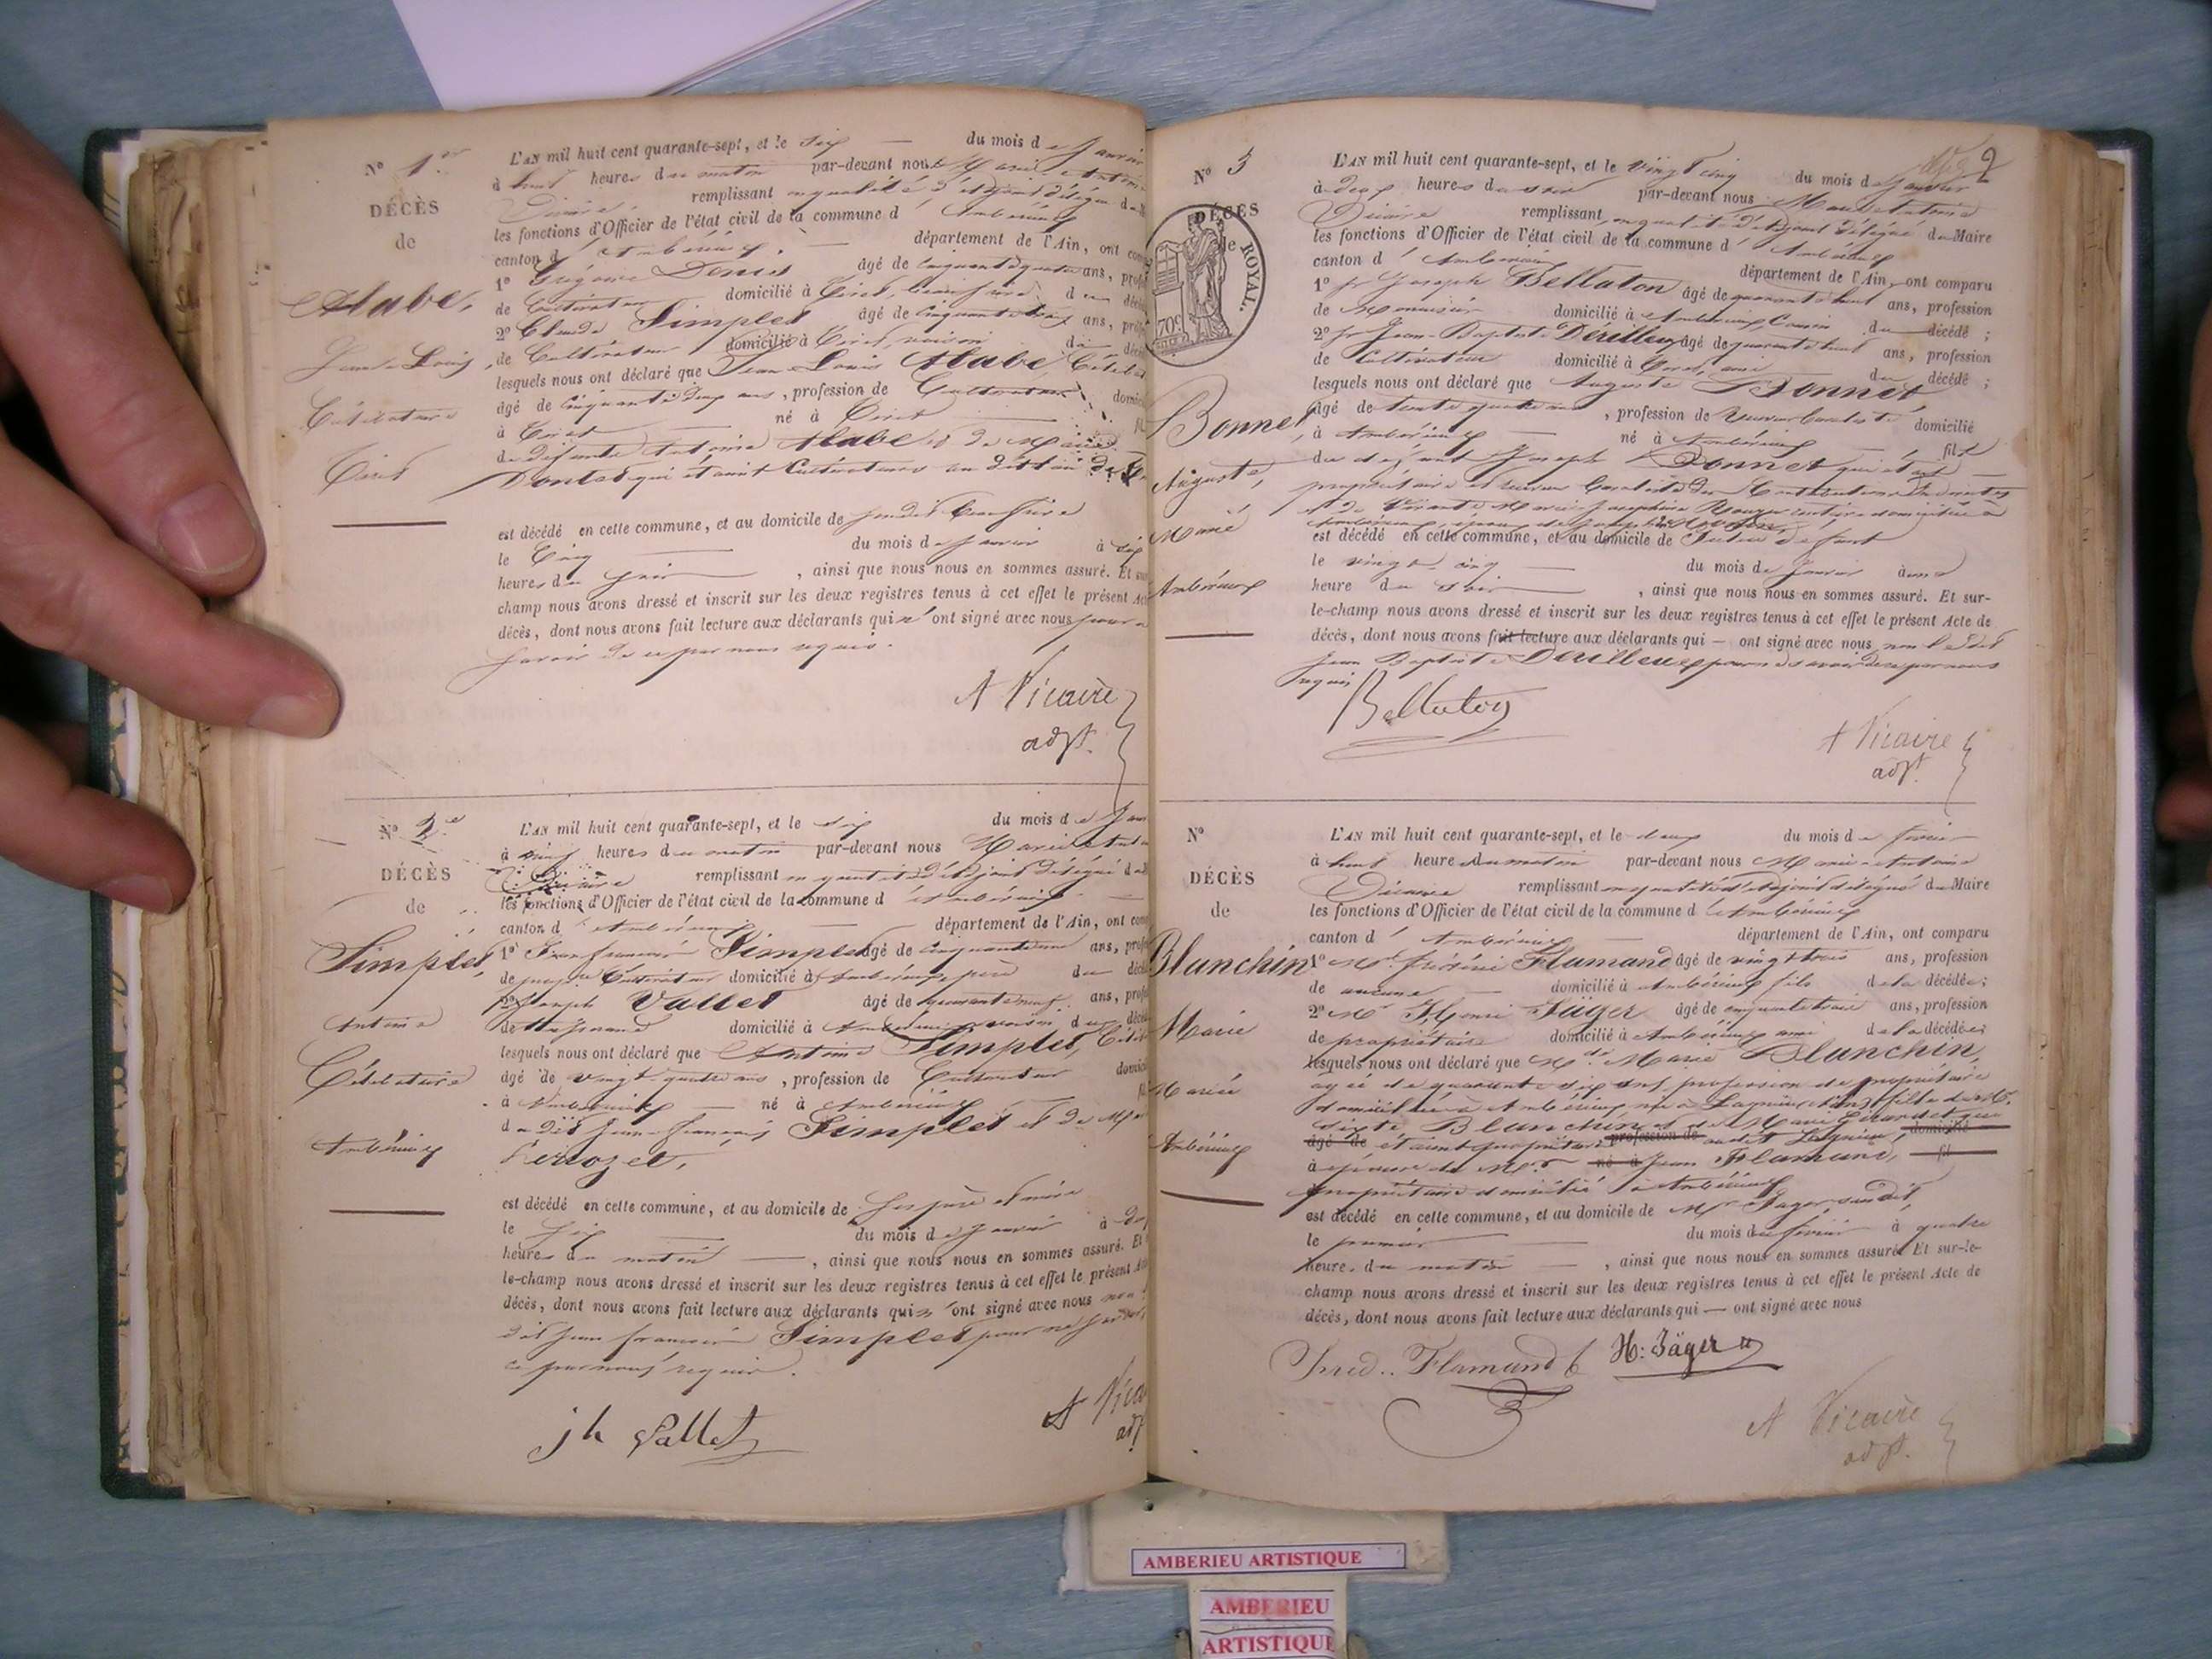 N° 1er
DÉCÈS
de
Alabe,
Jean Louis
Célibataire
L'AN mil huit cent quarante-sept, et le six du mois de Janvier
à huit heures du matin par-devant nous Marie Antoine
Vicaire remplissant en qualité d'adjoint délégué du
les fonctions d'Officier de l'état civil de la commune d' Ambérieux
canton d' Ambérieux département de l'Ain, ont
1° Grégoire Denis âgé de cinquante quatre ans,
de Cultivateur domicilié à beau frère du
2° Claude Simplet âgé de cinquante ans,
de Cultivateur domicilié à voisin du
lesquels nous ont déclaré que Jean Louis Alabe
âgé de cinquante ans, profession de Cultivateur
à né à
de défunts Antoine Alabe et de
qui étaient Cultivateurs au dit lieu
est décédé en cette commune, et au domicile de beau frère
le Cinq du mois de Janvier à six
heures du soir, ainsi que nous nous en sommes assuré. Et
champ nous avons dressé et inscrit sur les deux registres tenus à cet effet le présent
décès, dont nous avons fait lecture aux déclarants qui n' ont signé avec nous pour
savoir de ce par nous requis.
A Vicaire
adjt.
N° 2e
DÉCÈS
de
Simplet,
Antoine
Célibataire
Ambérieux
L'AN mil huit cent quarante-sept, et le six du mois de
à neuf heures du matin par-devant nous Marie
Vicaire remplissant en qualité d'adjoint délégué
les fonctions d'Officier de l'état civil de la commune d' Ambérieux
canton d' Ambérieux département de l'Ain, ont
1° Jean françois Simplet âgé de ans,
de Cultivateur domicilié à Ambérieux, père du
2° Joseph Vallet âgé de quarante neuf ans,
de domicilié à Ambérieux voisin du
lesquels nous ont déclaré que Antoine Simplet,
âgé de vingt-quatre ans, profession de Cultivateur
à Ambérieux né à Ambérieux
du dit Jean-françois Simplet et de
est décédé en cette commune, et au domicile de Ses père et mère
le Six du mois de Janvier à
heures du matin, ainsi que nous nous en sommes assuré. Et
le-champ nous avons dressé et inscrit sur les deux registres tenus à cet effet le présent
décès, dont nous avons fait lecture aux déclarants qui ont signé avec nous non
dit Jean françois Simplet pour ne
ce par nous requis.
jh Vallet
A Vica
adj
N° 3
DÉCÈS
de
ROYAL.
70c
Bonnet,
Auguste,
Marié
Ambérieux
2
L'AN mil huit cent quarante-sept, et le vingt cinq du mois de Janvier
à heures du soir par-devant nous Marie Antoine
Vicaire remplissant en qualité d'adjoint délégué du Maire
les fonctions d'Officier de l'état civil de la commune d' Ambérieux
canton d' Ambérieux département de l'Ain, ont comparu
1° Sr Joseph Bellaton âgé de quarante huit ans, profession
de Menuisier domicilié à Ambérieux, Cousin du décédé ;
2° Sr Jean-Baptiste Dérilleux âgé de quarante huit ans, profession
de Cultivateur domicilié à ami du décédé ;
lesquels nous ont déclaré que Auguste Bonnet
âgé de trente quatre ans, profession de Receveur buraliste domicilié
à Ambérieux né à Ambérieux, fils
du défunt Joseph Bonnet qui était
propriétaire et receveur buraliste des Contributions Indirectes
et de Vivante Marie Josephine domiciliée à
est décédé en cette commune, et au domicile de
le vingt cinq du mois de Janvier à une
heure du soir, ainsi que nous nous en sommes assuré. Et sur-
le-champ nous avons dressé et inscrit sur les deux registres tenus à cet effet le présent Acte de
décès, dont nous avons fait lecture aux déclarants qui — ont signé avec nous non le dit
Jean Baptiste Dérilleux pour ne savoir de ce par nous
requis
Bellaton
A Vicaire
adjt.
N°
DÉCÈS
de
Blanchin
Marie
Mariée
Ambérieux
L'AN mil huit cent quarante-sept, et le deux du mois de février
à huit heures du matin par-devant nous Marie Antoine
Vicaire remplissant en qualité d'adjoint délégué du Maire
les fonctions d'Officier de l'état civil de la commune d' Ambérieux
canton d' Ambérieux département de l'Ain, ont comparu
1° Mr fréderic Flamand âgé de vingt trois ans, profession
de aucune domicilié à Ambérieux fils de la décédée;
2° Mr Henri Jäger âgé de cinquante trois ans, profession
de propriétaire domicilié à Ambérieux ami de la décédée;
lesquels nous ont déclaré que Mde Marie Blanchin,
agée de quarante six ans, profession de propriétaire
domiciliée à Ambérieux, née à Lagnieu (Ain) fille de Mr.
Blanchin et de Marie Girardet qui
âgé de étaient propriétaires profession de audit Lagnieu, domicilié
à épouse de Mr né à Jean Flamand, fil
propriétaire domicilié à Ambérieux
est décédé en cette commune, et au domicile de Mr Jager, susdit,
le premier du mois de février à quatre
heures du matin, ainsi que nous nous en sommes assuré. Et sur-le-
champ nous avons dressé et inscrit sur les deux registres tenus à cet effet le présent Acte de
décès, dont nous avons fait lecture aux déclarants qui — ont signé avec nous
Fred.. Flamand
H: Jäger
A Vicaire
adjt.
AMBERIEU ARTISTIQUE
AMBERIEU
ARTISTIQUE